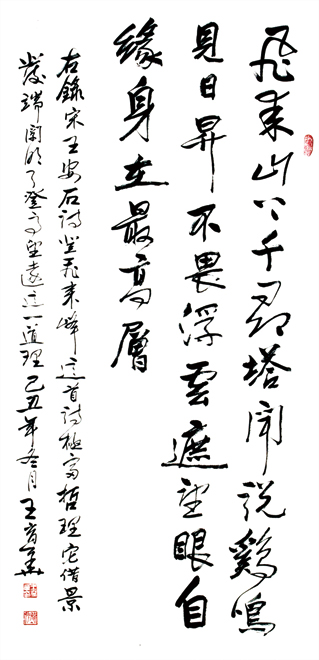 飛來山上千尋塔聞說鷄鳴
見日昇不畏浮雲遮望眼自
緣身在最高層
右錄宋王安石詩登飛來峰這首詩極富哲理它借景
發端闡明了登高望遠這一道理己丑年冬月王育